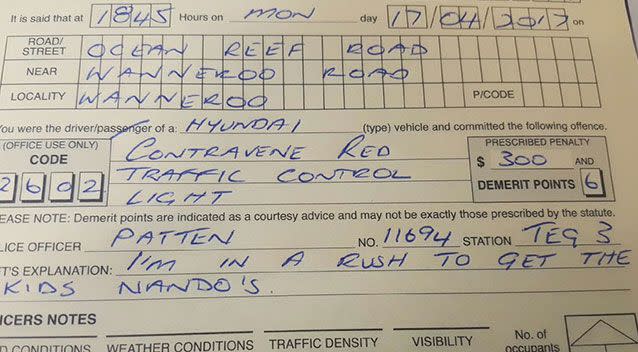 It is said that at 1845 Hours on MON day 17/04/2017 on
ROAD/STREET OCEAN REEF ROAD
NEAR WANNEROO ROAD
LOCALITY WANNEROO P/CODE
You were the driver/passenger of a: HYUNDAI (type) vehicle and committed the following offence.
(OFFICE USE ONLY) CODE 2602
CONTRAVENE RED
TRAFFIC CONTROL
LIGHT
PRESCRIBED PENALTY
$ 300 AND
DEMERIT POINTS 6
EASE NOTE: Demerit points are indicated as a courtesy advice and may not be exactly those prescribed by the statute.
LICE OFFICER PATTEN NO. 11694 STATION TEG 3
T'S EXPLANATION: I'M IN A RUSH TO GET THE
KIDS NANDO'S.
ICERS NOTES
D CONDITIONS WEATHER CONDITIONS TRAFFIC DENSITY VISIBILITY No. of
occupants